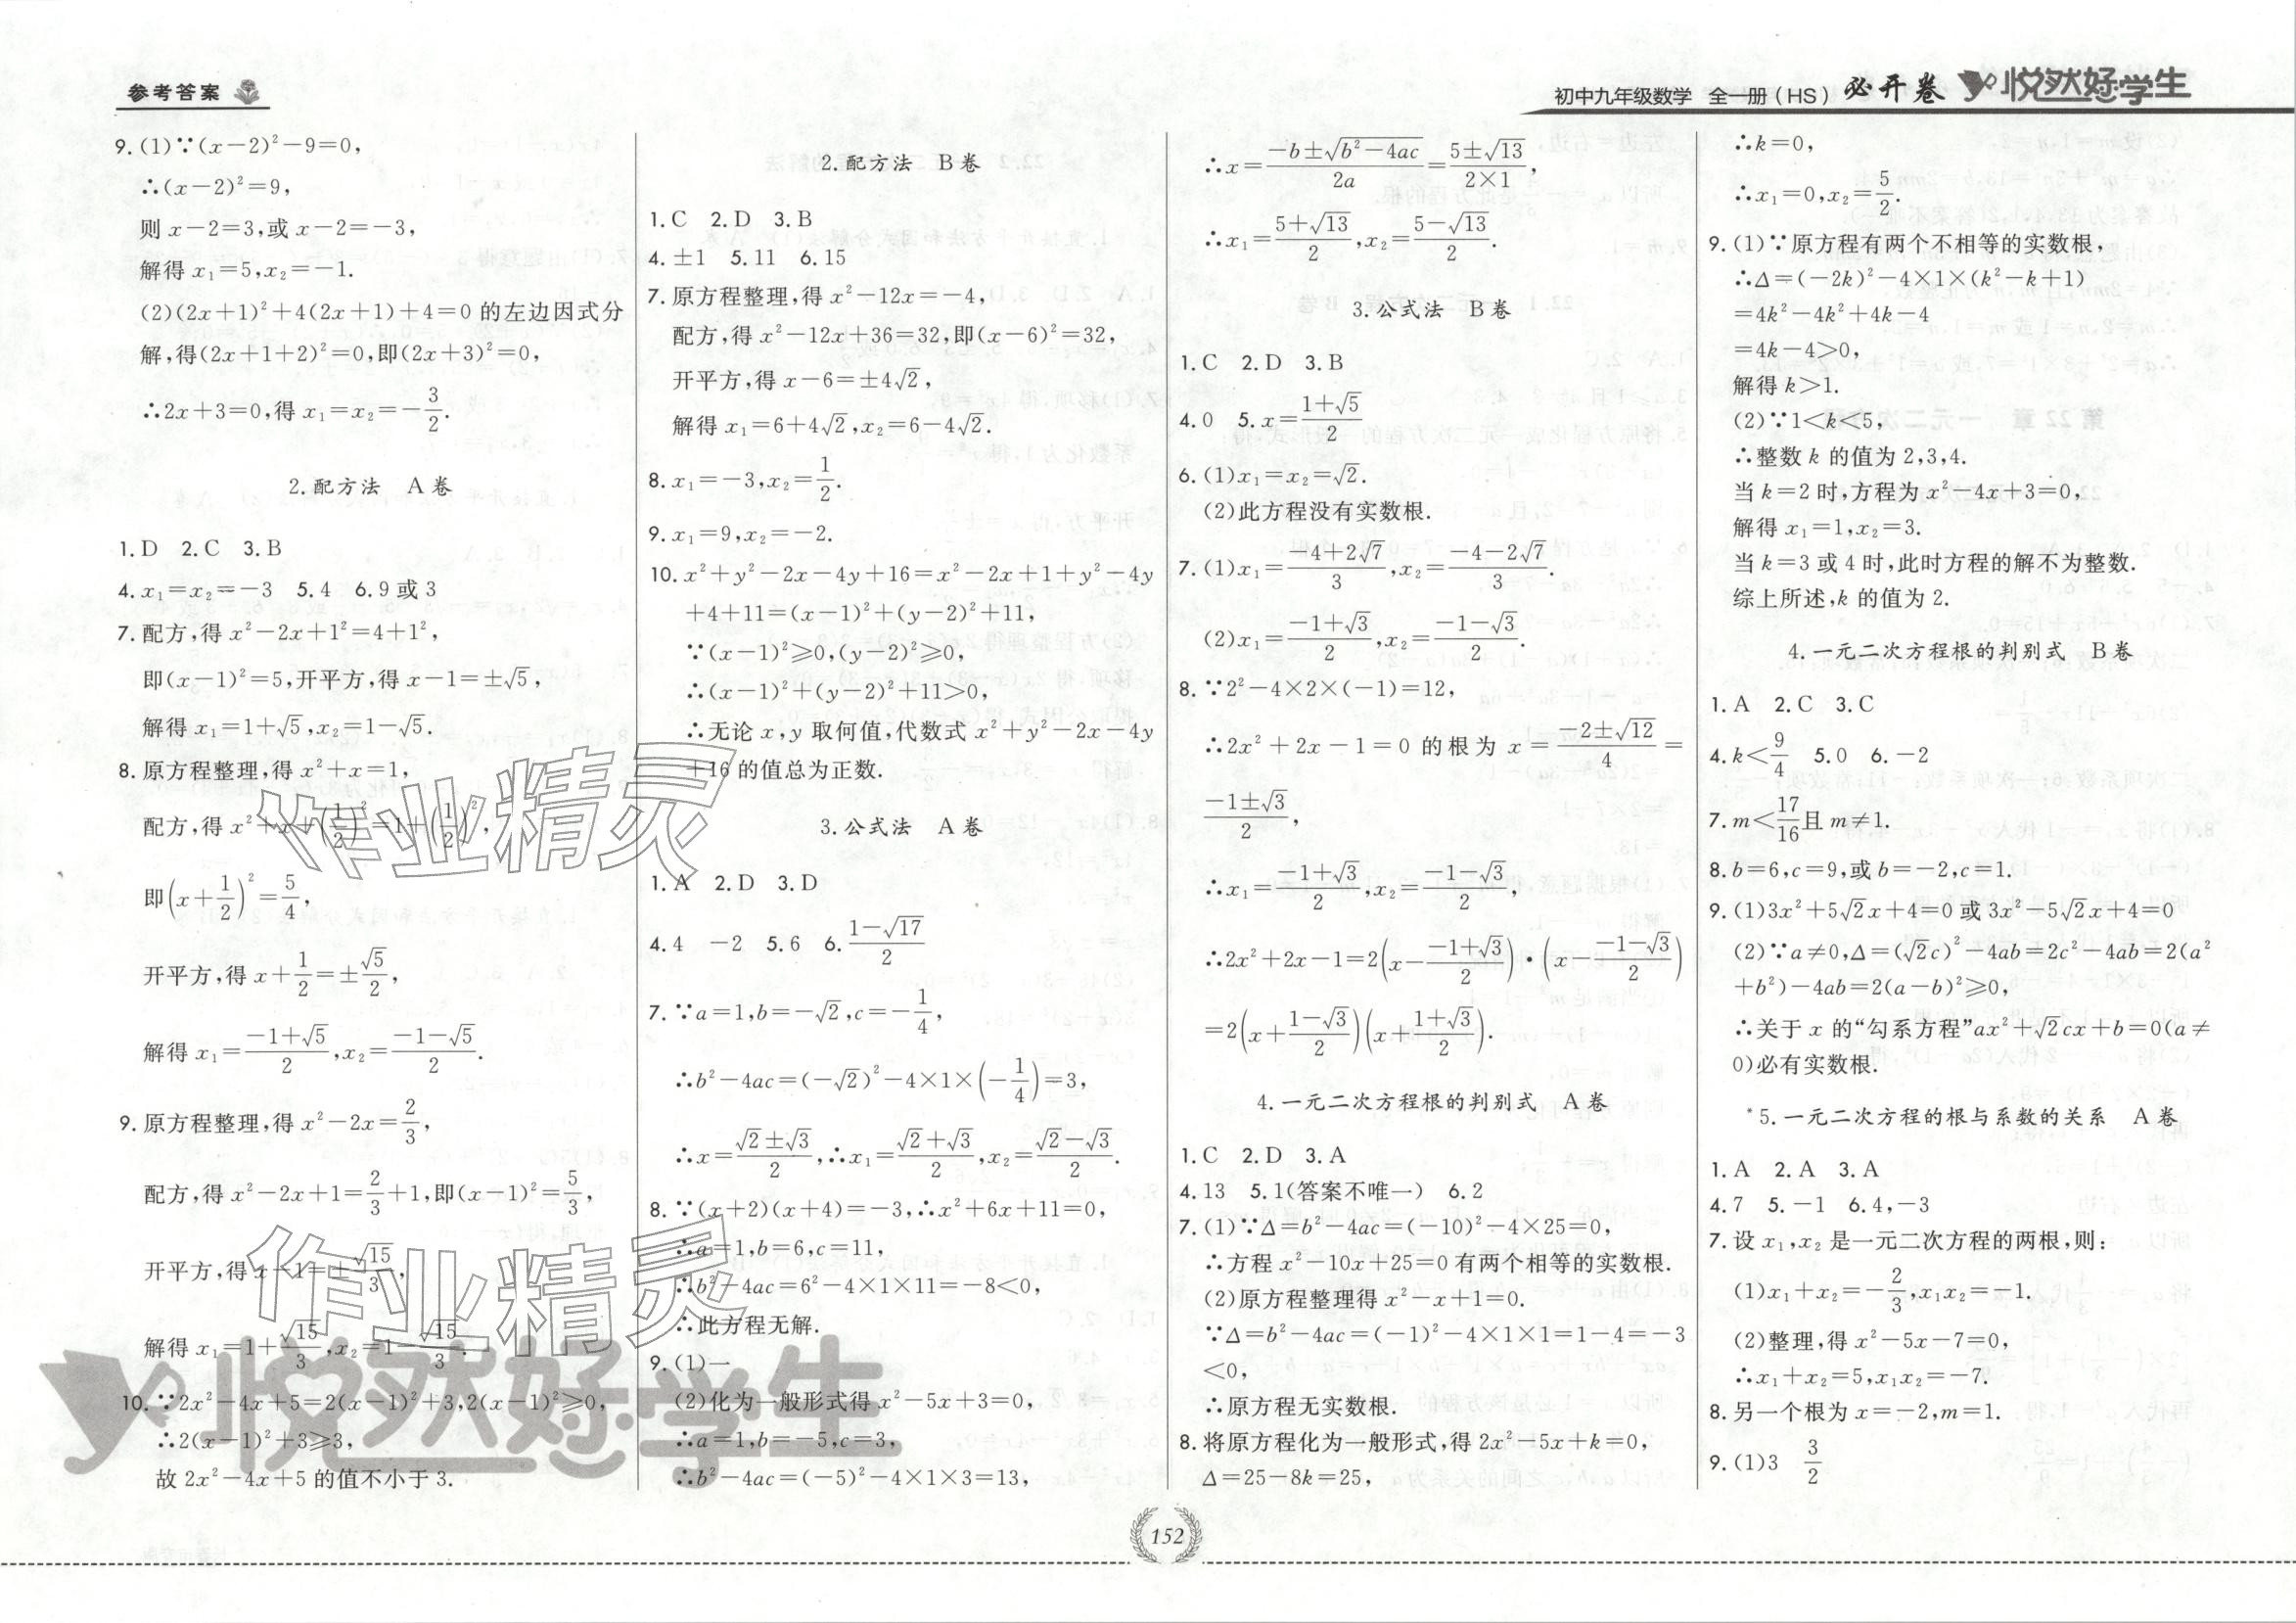 参考答案
初中九年级数学 全一册(HS) 必开卷 悦然好学生
9.(1)∵(x-2)²-9=0,
∴(x-2)²=9,
则x-2=3,或x-2=-3,
解得x₁=5,x₂=-1.
(2)(2x+1)²+4(2x+1)+4=0的左边因式分
解,得(2x+1+2)²=0,即(2x+3)²=0,
∴2x+3=0,得x₁=x₂=-3/2.
2.配方法 A卷
1.D 2.C 3.B
4.x₁=x₂=-3 5.4 6.9或3
7.配方,得x²-2x+1²=4+1²,
即(x-1)²=5,开平方,得x-1=±√5,
解得x₁=1+√5,x₂=1-√5.
8.原方程整理,得x²+x=1,
配方,得x²+x+(1/2)²=1+(1/2)²,
即(x+1/2)²=5/4,
开平方,得x+1/2=±√5/2,
解得x₁=(-1+√5)/2,x₂=(-1-√5)/2.
9.原方程整理,得x²-2x=2/3,
配方,得x²-2x+1=2/3+1,即(x-1)²=5/3,
开平方,得x-1=±√15/3,
解得x₁=1+√15/3,x₂=1-√15/3.
10.∵2x²-4x+5=2(x-1)²+3,2(x-1)²≥0,
∴2(x-1)²+3≥3,
故2x²-4x+5的值不小于3.
2.配方法 B卷
1.C 2.D 3.B
4.±1 5.11 6.15
7.原方程整理,得x²-12x=-4,
配方,得x²-12x+36=32,即(x-6)²=32,
开平方,得x-6=±4√2,
解得x₁=6+4√2,x₂=6-4√2.
8.x₁=-3,x₂=1/2.
9.x₁=9,x₂=-2.
10.x²+y²-2x-4y+16=x²-2x+1+y²-4y
+4+11=(x-1)²+(y-2)²+11,
∵(x-1)²≥0,(y-2)²≥0,
∴(x-1)²+(y-2)²+11>0,
∴无论x,y取何值,代数式x²+y²-2x-4y
+16的值总为正数.
3.公式法 A卷
1.A 2.D 3.D
4.4 -2 5.6 6.(1-√17)/2
7.∵a=1,b=-√2,c=-1/4,
∴b²-4ac=(-√2)²-4×1×(-1/4)=3,
∴x=(√2±√3)/2,∴x₁=(√2+√3)/2,x₂=(√2-√3)/2.
8.∵(x+2)(x+4)=-3,∴x²+6x+11=0,
∴a=1,b=6,c=11,
∴b²-4ac=6²-4×1×11=-8<0,
∴此方程无解.
9.(1)一
(2)化为一般形式得x²-5x+3=0,
∴a=1,b=-5,c=3,
∴b²-4ac=(-5)²-4×1×3=13,
∴x=(-b±√(b²-4ac))/2a=(5±√13)/(2×1),
∴x₁=(5+√13)/2,x₂=(5-√13)/2.
3.公式法 B卷
1.C 2.D 3.B
4.0 5.x=(1+√5)/2
6.(1)x₁=x₂=√2.
(2)此方程没有实数根.
7.(1)x₁=(-4+2√7)/3,x₂=(-4-2√7)/3.
(2)x₁=(-1+√3)/2,x₂=(-1-√3)/2.
8.∵2²-4×2×(-1)=12,
∴2x²+2x-1=0的根为x=(-2±√12)/4=
(-1±√3)/2,
∴x₁=(-1+√3)/2,x₂=(-1-√3)/2,
∴2x²+2x-1=2(x-(-1+√3)/2)·(x-(-1-√3)/2)
=2(x+(1-√3)/2)(x+(1+√3)/2).
4.一元二次方程根的判别式 A卷
1.C 2.D 3.A
4.13 5.1(答案不唯一) 6.2
7.(1)∵Δ=b²-4ac=(-10)²-4×25=0,
∴方程x²-10x+25=0有两个相等的实数根.
(2)原方程整理得x²-x+1=0.
∵Δ=b²-4ac=(-1)²-4×1×1=1-4=-3
<0,
∴原方程无实数根.
8.将原方程化为一般形式,得2x²-5x+k=0,
Δ=25-8k=25,
∴k=0,
∴x₁=0,x₂=5/2.
9.(1)∵原方程有两个不相等的实数根,
∴Δ=(-2k)²-4×1×(k²-k+1)
=4k²-4k²+4k-4
=4k-4>0,
解得k>1.
(2)∵1<k<5,
∴整数k的值为2,3,4.
当k=2时,方程为x²-4x+3=0,
解得x₁=1,x₂=3.
当k=3或4时,此时方程的解不为整数.
综上所述,k的值为2.
4.一元二次方程根的判别式 B卷
1.A 2.C 3.C
4.k<9/4 5.0 6.-2
7.m<17/16且m≠1.
8.b=6,c=9,或b=-2,c=1.
9.(1)3x²+5√2x+4=0或3x²-5√2x+4=0
(2)∵a≠0,Δ=(√2c)²-4ab=2c²-4ab=2(a²
+b²)-4ab=2(a-b)²≥0,
∴关于x的“勾系方程”ax²+√2cx+b=0(a≠
0)必有实数根.
*5.一元二次方程的根与系数的关系 A卷
1.A 2.A 3.A
4.7 5.-1 6.4,-3
7.设x₁,x₂是一元二次方程的两根,则:
(1)x₁+x₂=-2/3,x₁x₂=-1.
(2)整理,得x²-5x-7=0,
∴x₁+x₂=5,x₁x₂=-7.
8.另一个根为x=-2,m=1.
9.(1)3 3/2
作业精灵
作业精灵
悦然好学生
152